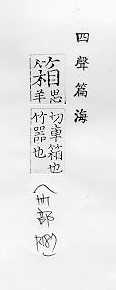 四聲篇海
箱思羊
切車箱也
竹器也
(竹部